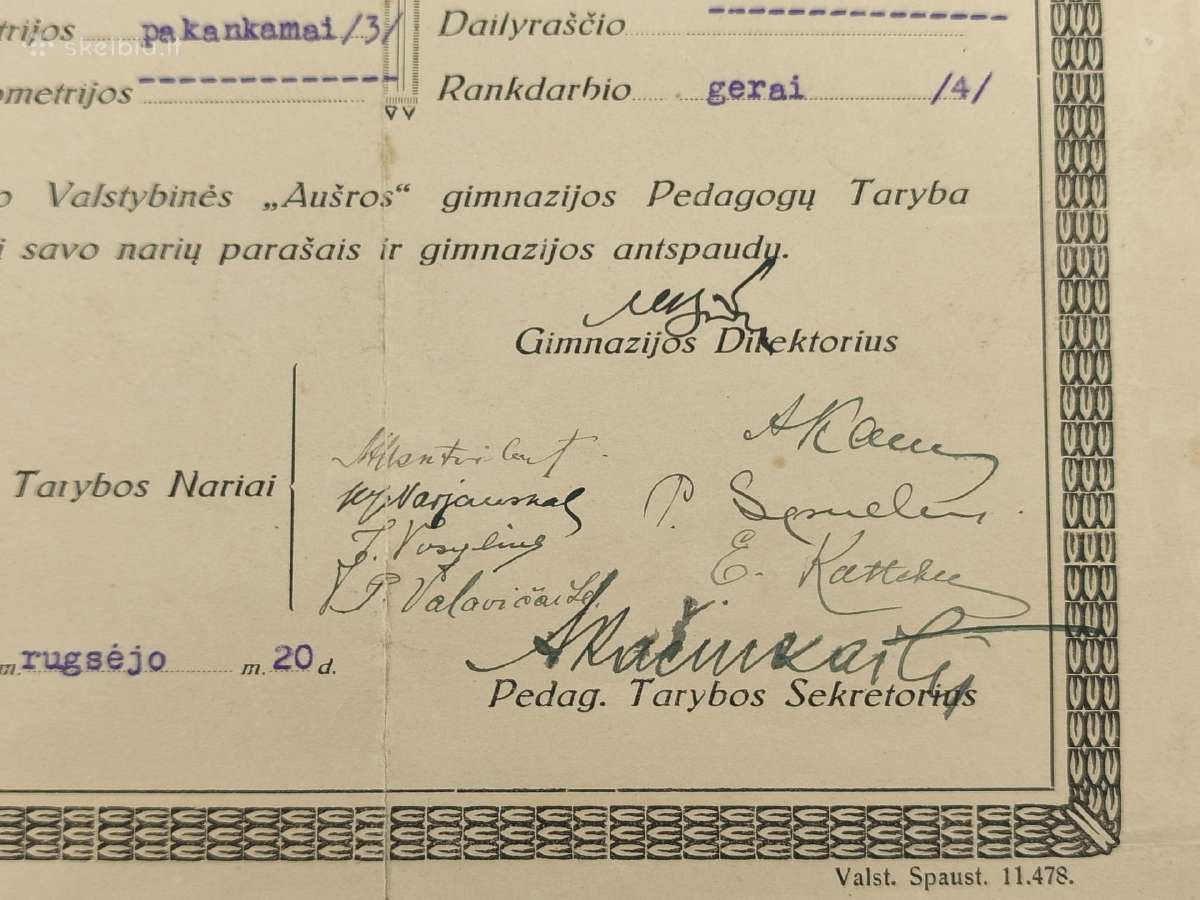 trijos pakankamai/3/
Dailyraščio
skelbiu.lt
ometrijos
Rankdarbio gerai /4/
o Valstybinės „Aušros“ gimnazijos Pedagogų Taryba
i savo narių parašais ir gimnazijos antspaudu.
Gimnazijos Direktorius
Tarybos Nariai
J. Vosylius
P. Valavičaitė
E.
P.
m. rugsėjo m. 20 d.
Pedag. Tarybos Sekretorius
Valst. Spaust. 11.478.